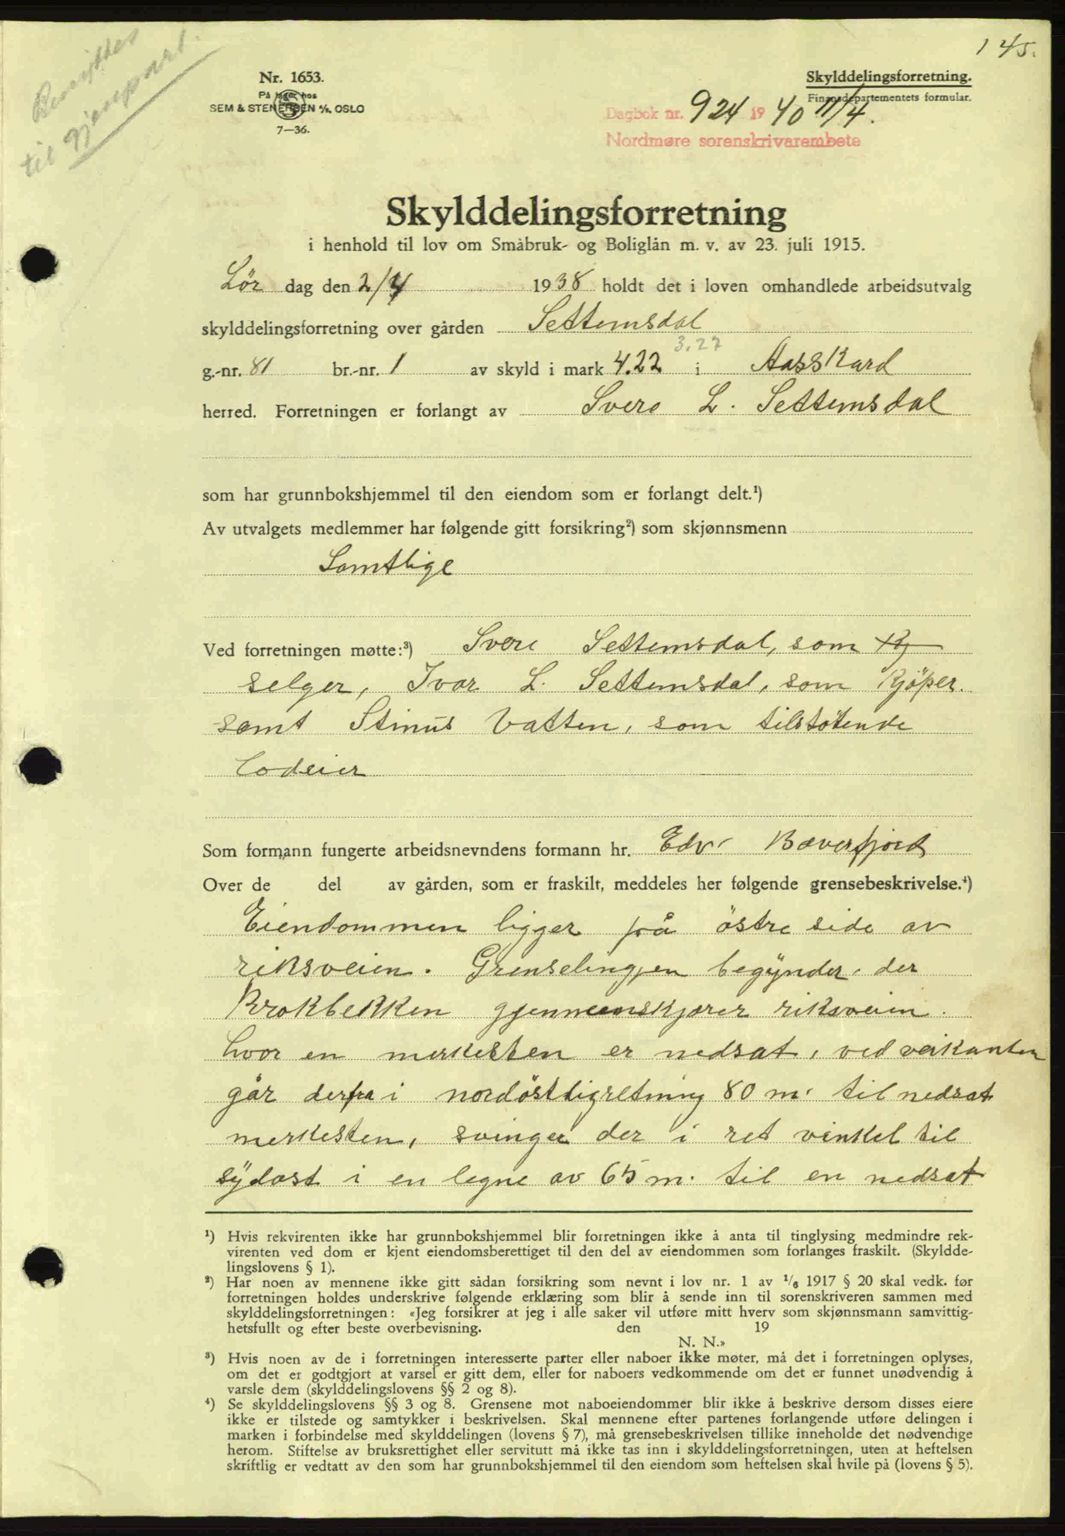 145.
Benyttes
til gjenpart.
Nr. 1653.
På lager hos
SEM & STENERSEN A/S, OSLO
7—36.
Skylddelingsforretning.
Finansdepartementets formular.
Dagbok nr. 924 1940 11/4.
Nordmøre sorenskrivarembete
Skylddelingsforretning
i henhold til lov om Småbruk- og Boliglån m. v. av 23. juli 1915.
Lör dag den 2/4 1938 holdt det i loven omhandlede arbeidsutvalg
skylddelingsforretning over gården Settemsdal
3,27
g.-nr. 81 br.-nr. 1 av skyld i mark 4.22 i Aasskard
herred. Forretningen er forlangt av Svere L. Settemsdal
som har grunnbokshjemmel til den eiendom som er forlangt delt.¹)
Av utvalgets medlemmer har følgende gitt forsikring²) som skjønnsmenn
Samtlige
Ved forretningen møtte:³) Svere Settemsdal, som Kj
selger, Ivar L. Settemsdal, som Kjöper.
samt Stinus Vatten, som tilstötende
lodeier
Som formann fungerte arbeidsnevndens formann hr. Edv. Bæverfjord
Over de del av gården, som er fraskilt, meddeles her følgende grensebeskrivelse.⁴)
Eiendommen ligger på östre side av
riksveien. Grenselingjen begynder, der
Brokbekken gjennemskjærer riksveien.
hvor en merkesten er nedsat, ved veikanten
går derfra i nordöstligretning 80 m. til nedsat
merkesten, svinger der i ret vinkel til
sydost i en legne av 65 m. til en nedsat
¹) Hvis rekvirenten ikke har grunnbokshjemmel blir forretningen ikke å anta til tinglysing medmindre rek-
virenten ved dom er kjent eiendomsberettiget til den del av eiendommen som forlanges fraskilt. (Skyldde-
lingslovens § 1).
²) Har noen av mennene ikke gitt sådan forsikring som nevnt i lov nr. 1 av 1/6 1917 § 20 skal vedk. før
forretningen holdes underskrive følgende erklæring som blir å sende inn til sorenskriveren sammen med
skylddelingsforretningen: «Jeg forsikrer at jeg i alle saker vil utføre mitt hverv som skjønnsmann samvittig-
hetsfullt og efter beste overbevisning. den 19
N. N.»
³) Hvis noen av de i forretningen interesserte parter eller naboer ikke møter, må det i forretningen oplyses,
om det er godtgjort at varsel er gitt dem, eller for naboers vedkommende om det er funnet unødvendig å
varsle dem (skylddelingslovens §§ 2 og 8).
⁴) Se skylddelingslovens §§ 3 og 8. Grensene mot naboeiendommer blir ikke å beskrive dersom disses eiere
ikke er tilstede og samtykker i beskrivelsen. Skal mennene efter partenes forlangende utføre delingen i
marken i forbindelse med skylddelingen (lovens § 7), må grensebeskrivelsen tillike inneholde det nødvendige
herom. Stiftelse av bruksrettighet eller servitutt må ikke tas inn i skylddelingsforretningen, uten at heftelsen
skriftlig er vedtatt av den som har grunnbokshjemmel til den eiendom som heftelsen skal hvile på (lovens § 5).